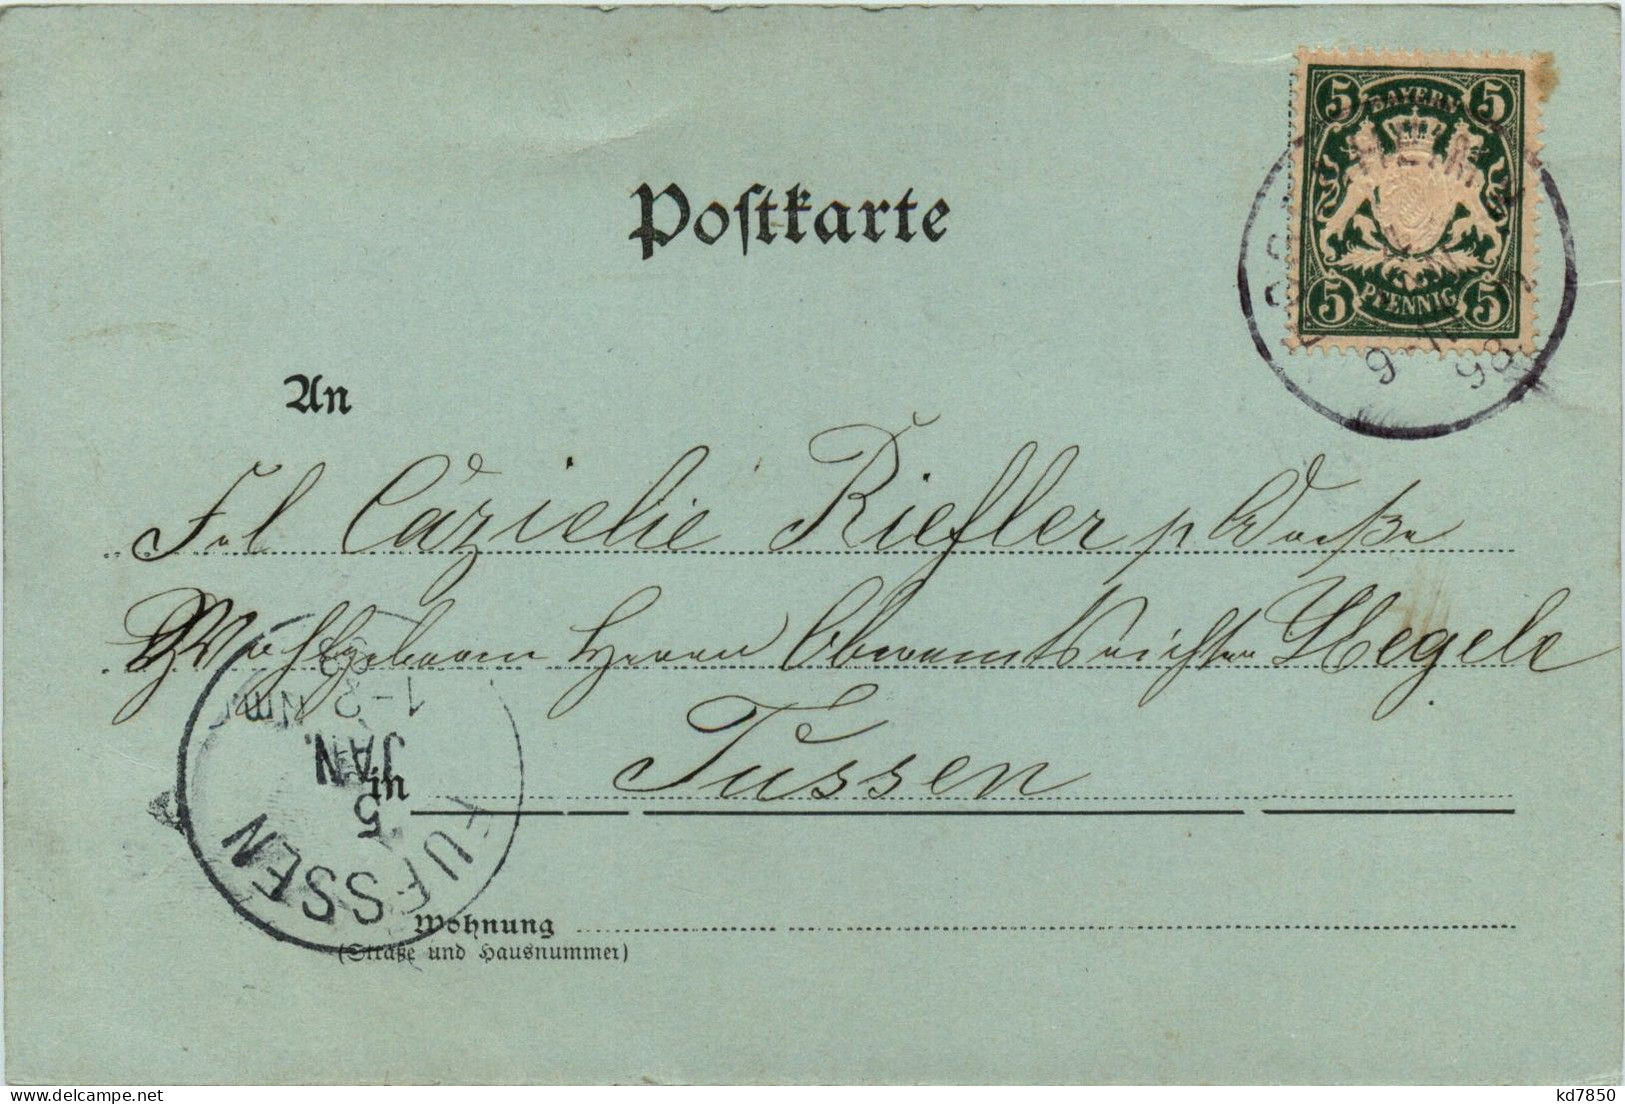 5 BAYERN 5
5 PFENNIG 5
98
Postkarte
An
Frl Cäzielie Riefler p Adresse
Wohlgeborn Herrn Oberamtsrichter Hegele
in Füssen
FUESSEN
5
JAN.
1-2 Nm
98
Wohnung
(Straße und Hausnummer)
kd7850